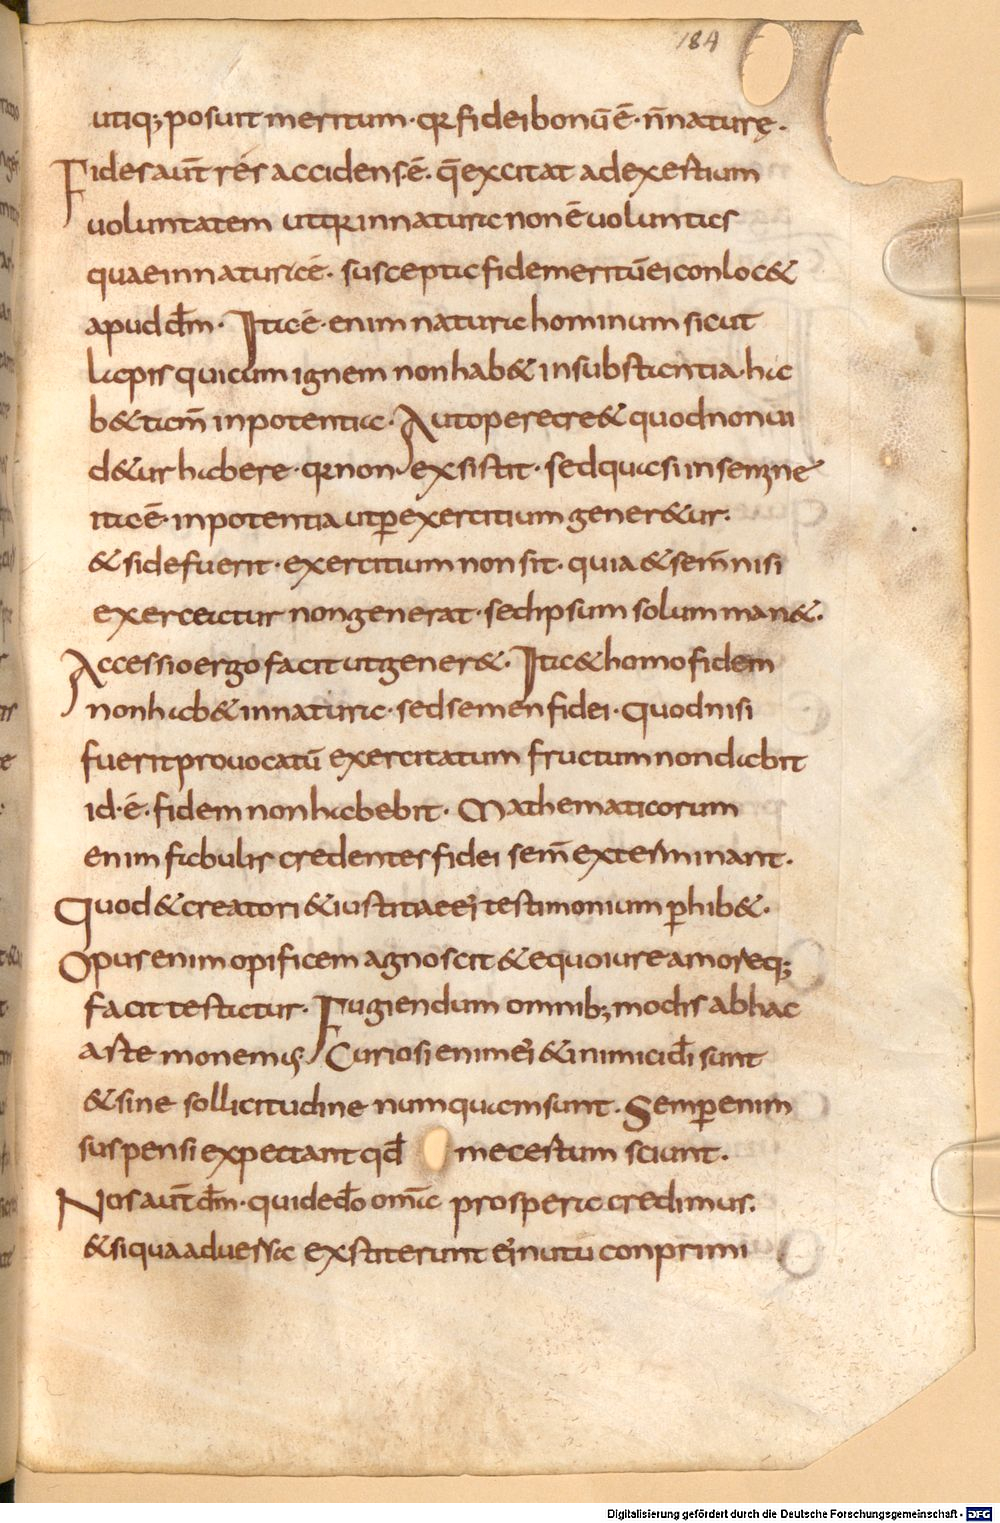 184
utiq; posuit meritum · qr fidei bonū ē · n̄ naturę ·
Fides aut̄ res accidens ē · q̄ excitat ad exestium
uoluntatem utqr in natura non ē uoluntas
quae in natura ē · suscepta fide meritū ei conloc&
apud dm̄ · Ita ē · enim natura hominum sicut
lapis qui cum ignem non hab& in substantia · ha
b& tam̄ in potentia · Aut operecre& quod non ui
d&ur habere · qr non exsistit · sed quasi in semine
ita ē · in potentia ut p̄ exercitium gener&ur ·
& si defuerit · exercitium non sit · quia & sem̄ nisi
exerceatur non generat · sed ipsum solum man& ·
Accessio ergo facit ut gener& · Ita & homo fidem
non hab& in natura · sed semen fidei · quod nisi
fuerit prouocatū exercitatum fructum non dabit
id · ē · fidem non habebit · Mathematicorum
enim fabulis credentes fidei sem̄ exterminant ·
Quod & creatori & iustitiae ei testimonium p̄hib& ·
Opus enim opificem agnoscit & equo iure amoreq;
facit testatur · Fugiendum omnib; modis ab hac
arte monemus Curiosi enim ei & inimici di sunt
& sine sollicitudine numquam sunt · Semp̄ enim
suspensi expectant qd̄ mecestum sciunt ·
Nos aut̄ dm̄ · qui de do om̄a prospera credimus ·
& si qua aduersa exstiterunt ei nutu conprimi
Digitalisierung gefördert durch die Deutsche Forschungsgemeinschaft - DFG